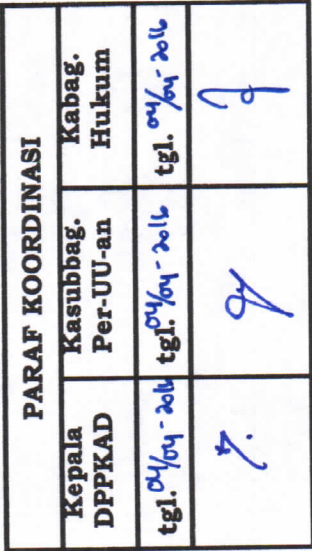 PARAF KOORDINASI
Kepala DPPKAD
Kasubbag. Per-UU-an
Kabag. Hukum
tgl. 04/04-2016
tgl. 04/04-2016
tgl. 04/04-2016